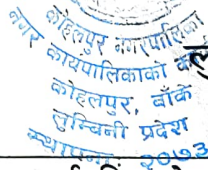 कोहलपुर नगरपालिका
नगर कार्यपालिकाको
कोहलपुर, बाँके
लुम्बिनी प्रदेश
स्थापना २०७३